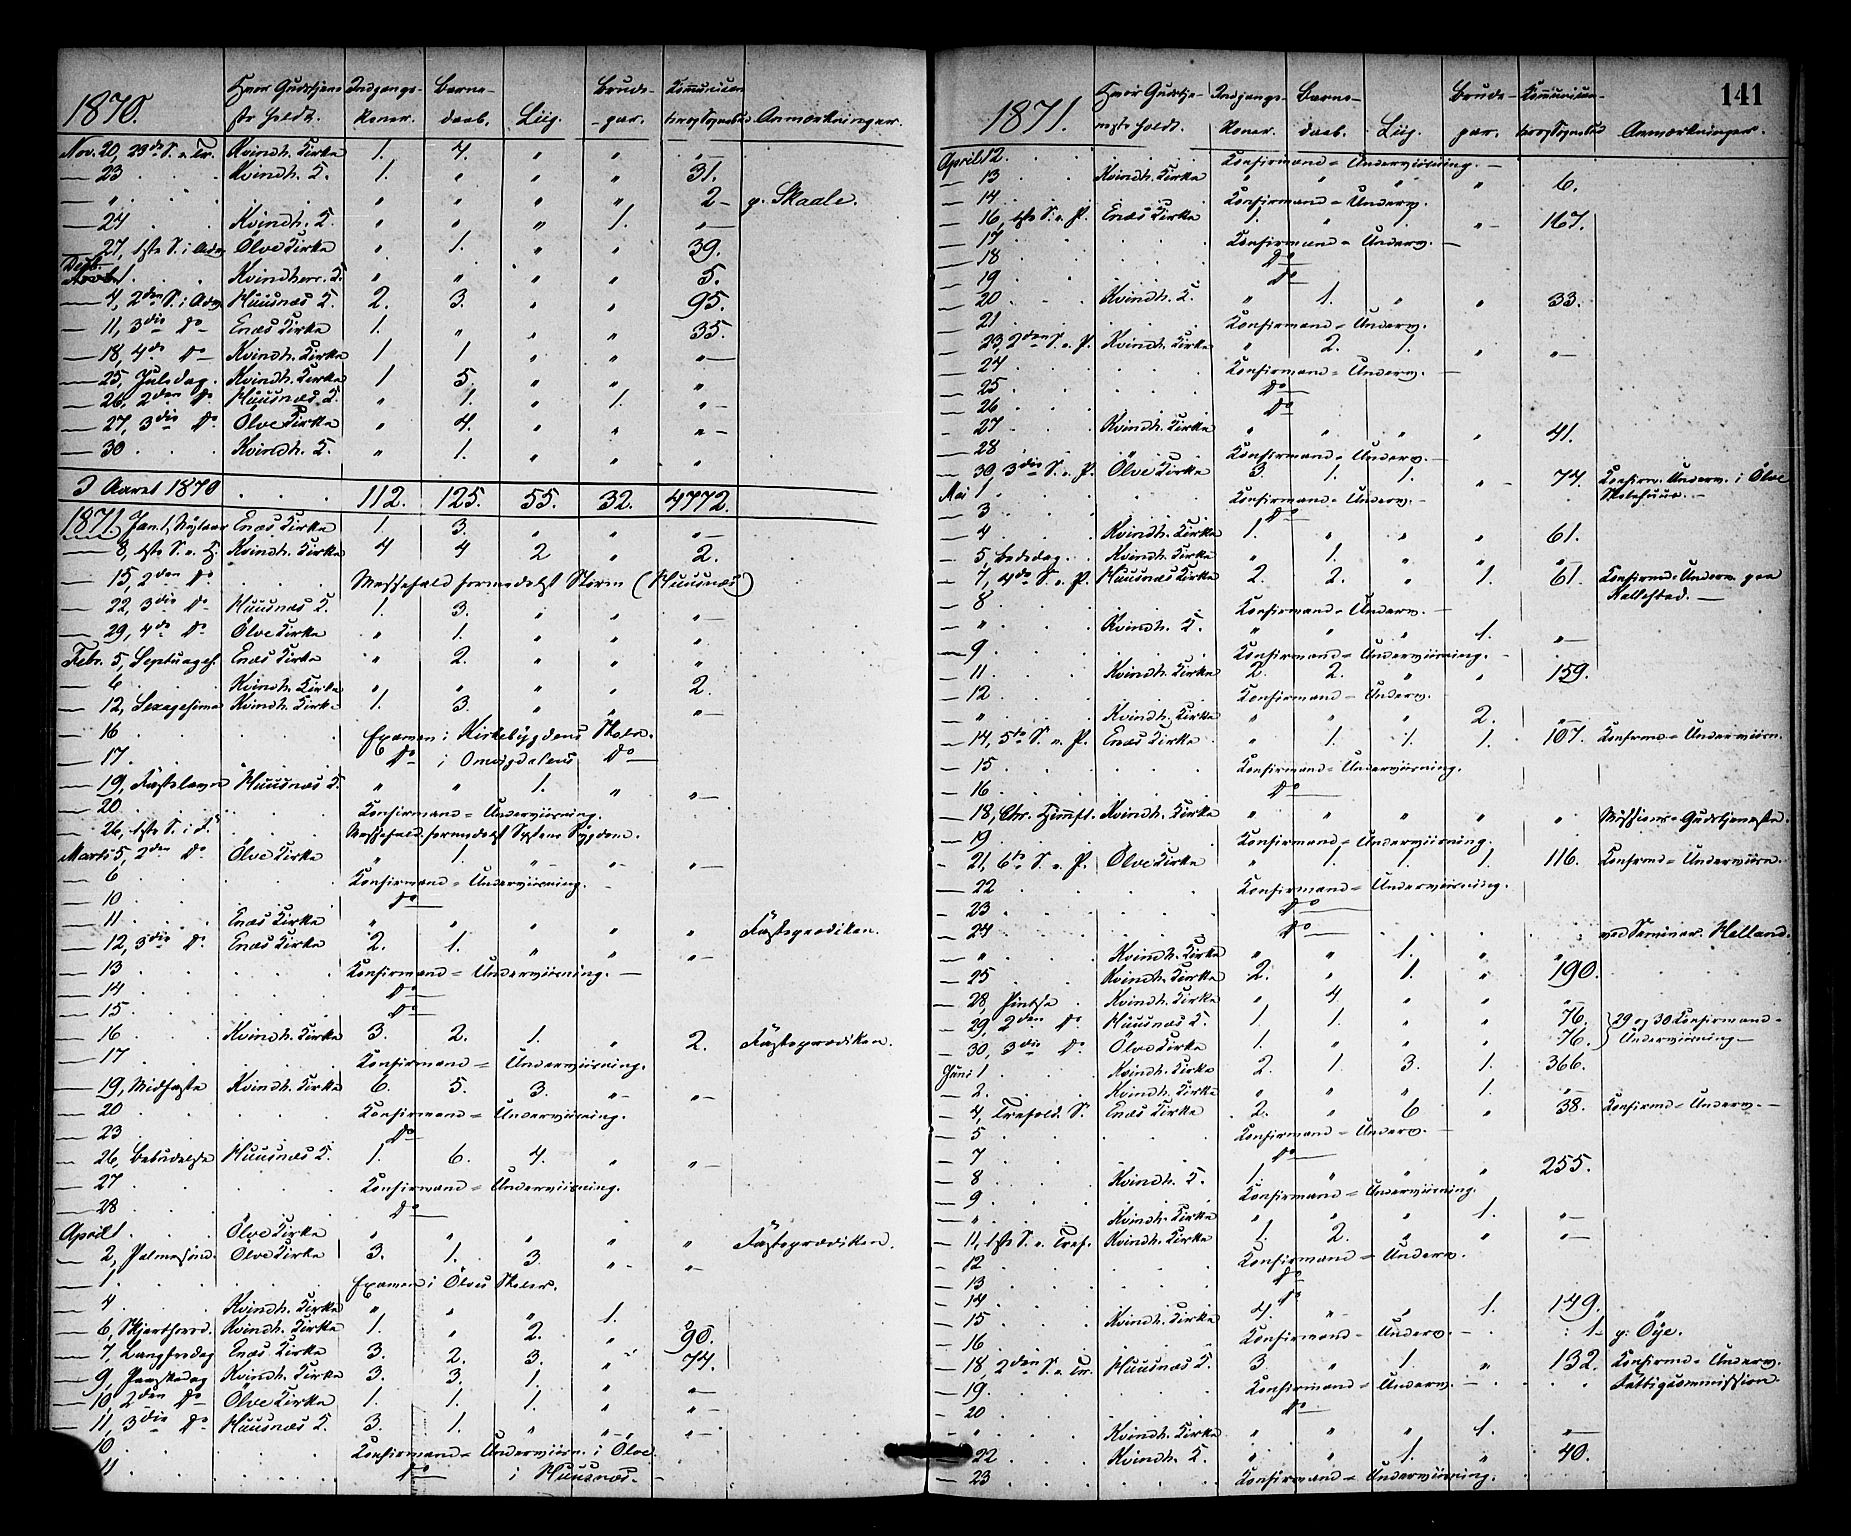 1870. Hvor Gudstjene- Indgangs- Barne- Brude- Kommunican-
ste holdt. koner. daab. Liig. -par. ter og Sognebud Anmærkninger.
Nov. 20, 23de S. e. Tr. Kvindh. Kirke 1. 4. " " "—
— 23 . . . Kvindh. K. 1. " " " 31.
— " . . . " " " " 2 – p. Skaale.
— 24 . . Kvindh. K. " " " 1. "—
— 27, 1ste S. i Adv. Ölve Kirke " 1. " " 39.
Decb. 1 . . Kvindherr. K. " " " " 5.
— 4, 2den S. i Adv. Huusnæs K. 2. 3. " " 95.
— 11, 3die Do Enæs Kirke 1. " " " 35.
— 18, 4de Do Kvindh. Kirke 1 1 " " "—
— 25, Juledag. Kvindh. Kirke 1 5. " " "
— 26, 2den Do Huusnæs K. " 1. " 1. "—
— 27, 3die Do Ölve Kirke " 4. " " "—
— 30 . . . Kvindh. K. " 1. " " "
I Aaret 1870 . . . 112. 125. 55. 32. 4772.
1871. Jan. 1, Nytaar Enæs Kirke 1. 3. " " "—
— 8, 1ste S. e. H. Kvindh. Kirke 4 4 2 " 2.
— 15, 2den Do . . . Messefald formedelst Storm (Huusnæs)
— 22, 3die Do Huusnæs K. 1. 3. " " "—
— 29, 4de Do Ölve Kirke " 1. " " "—
Febr. 5, Septuages. Enæs Kirke " 2. " " "
— 6 . . Kvindh. Kirke " " " " 2.
— 12, Sexagesima Kvindh. Kirke 1. 3. " " "—
— 16 . . . Examen i Kirkebygdens Skole.
— 17. . . . Do i Omvigdalens Do
— 19, Fastelavn Huusnæs K. " " 1. " "—
— 20 . . . Konfirmand-Underviisning.
— 26, 1ste S. i F. . . . Messefald formedelst Sygdom.
Marts 5, 2den Do Ölve Kirke " 1. " " "—
— 6 . . . Konfirmand-Underviisning. –
— 10 . . . Do
— 11. . . Enæs Kirke " " " " " Fasteprædiken.
— 12, 3die Do Enæs Kirke 2. 1. " " "—
— 13 . . . Konfirmand-Underviisning. —
— 14 . . . Do
— 15. . . . Do
— 16 . . Kvindh. Kirke 3. 2. 1. " 2. Fasteprædiken.
— 17 . . . Konfirmand-Underviisning.
— 19, Midfaste Kvindh. Kirke 6. 5. 3. " "—
— 20 . . . Konfirmand-Underviisning.
— 23 . . . Do
— 26, Bebudelse Huusnæs K. 1. 6. 4. " "—
— 27 . . . Konfirmand-Underviisning.
— 28 . . . Do
April 1. . Ölve Kirke " " " " " Fasteprædiken.
— 2, Palmesønd. Ölve Kirke 3. 1. 3. " "
— 1 . . . Examen i Ölves Skoler.
— 4 . . . Kvindh. Kirke " " " 1.
— 6, Skjærthorsd. Kvindh. Kirke 1. " 2. " 90.
— 7, Langfredag Enæs Kirke 3. 2. 3. " 74.
— 9, Paaskedag Kvindh. Kirke 3. 3. 1. " "—
— 10, 2den Do Ölve Kirke 1. 1. 1. " "—
— 11, 3die Do Huusnæs K. 3. 1. " " "—
10. . . . Konfirmand-Underviisn. i Ölve.
11 . . . Do i Huusnæs. –
141
1871. Hvor Gudstje- Indgangs- Barne- Brude- Kommunican-
neste holdt. koner. daab. Liig. par. ter og Sognebud Anmærkninger.
April 12. . . . Konfirmand-Underviisning. –
— 13 . . Kvindh. Kirke " " " " 6.
— 14 . . . Konfirmand-Underv.
— 16, 1ste S. e. P. Enæs Kirke 1. " 1. " 167.
— 17 . . . Konfirmand-Underv. —
— 18 . . . Do
— 19 . . . Do
— 20 . . Kvindh. K. " 1. " " 33.
— 21 . . . Konfirmand-Underv.
— 23, 2den S. e. P. Kvindh. Kirke " 2. 1. " "—
— 24 . . . Konfirmand-Underv. —
— 25 . . . Do
— 26 . . . Do
— 27 . . Kvindh. Kirke " " " " 41.
— 28 . . . Konfirmand-Underv. —
— 30 3die S. e. P. Ölve Kirke 3. 1. 1. " 74. Konfirm. Underv. i Ölve
Skolehuus. –
Mai 1 . . . Konfirmand-Underv. –
— 3 . . . Do
— 4 . . Kvindh. Kirke 1. " " " 61.
— 5, Bededag . Kvindh. Kirke " 1. " " "—
— 7, 4de S. e. P. Huusnæs Kirke 2. 2. " 1. 61. Konfirmd-Underv. paa
Kalkestad. —
— 8 . . . Konfirmand-Underv. —
— " . . Kvindh. K. " " " 1. "—
— 9 . . . Konfirmand-Underviisning. –
— 11 . . Kvindh. Kirke 2. 2. " " 159.
— 12 . . . Konfirmand-Underv. –
— " . . Kvindh. Kirke " " " 2. "—
— 14, 5te S. e. P. Enæs Kirke " 1. 1. 1. 107. Konfirmd-Underviisn.
— 15 . . . Konfirmand-Underviisning.
— 16 . . . Do
— 18, Chr. Himlf. Kvindh. Kirke " " " " " Missions-Gudstjeneste.
— 19 . . . Konfirmand-Underviisning.
— 21, 6te S. e. P. Ölve Kirke " 1. 1. 1. 116. Konfirmd-Underviisn.
— 22 . . . Konfirmand-Underviisning.
— 23 . . . Do
— 24 . . . Do ved Seminar. Helland.
— " . . Kvindh. Kirke " " 1. " "
— 25 . . Kvindh. Kirke 2. " 1. " 190.
— 28, Pintse . Kvindh. Kirke " 4 " " "—
— 29, 2den Do Huusnæs K. 1. 1. " " 76. } 29 og 30 Konfirmand-
— 30, 3die Do Ölve Kirke 1. " " " 76. } Underviisning—
Juni 1 . . Kvindh. Kirke 2. 1 3. 1. 366.
— 2. . . Kvindh. Kirke " " " 1. "—
— 4, Trefold. S. Enæs Kirke 2. " 6 " 38. Konfirmd-Underv. —
— 5 . . . Konfirmand-Underv. –
— 7 . . . Do
— 8 . . Kvindh. K. 1. " " " 255.
— 9 . . . Konfirmand-Underviisning.
— " . . Kvindh. Kirke " " " 1. "—
— 11, 1ste S. e. Tref. Kvindh. Kirke 1. 2. " " "—
— 12 . . . Konfirmand-Underv.
— 13 . . . Do
— 14 . . . Do
— 15 . . Kvindh. Kirke 4. " " 1. 149.
— 16 . . . Konfirmand-Underv. – 1– p: Öye.
— 18, 2den S. e. Tr. Huusnæs K. 3. " 1. " 132. Konfirmd-Underv.
— 19. . . . Konfirmand-Underv. – Fattigcommission.
— 20 . . . Do
— " . . Kvindh. Kirke " " " 1. "—
— 22 . . Kvindh. K " " 1. " 40.
— 23 . . . Konfirmand-Underviisning.